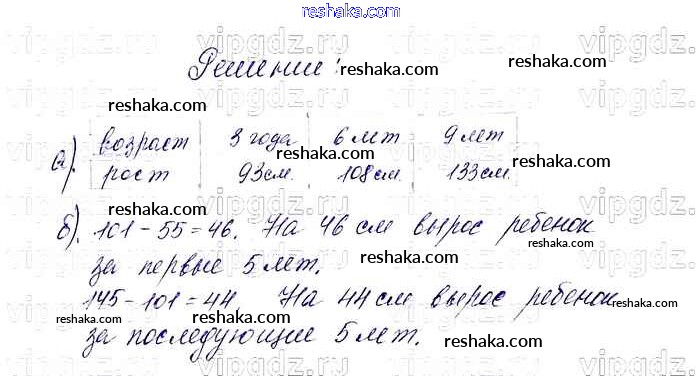 reshaka.com
vipgdz.com vipgdz.com vipgdz.com
Решение: reshaka.com
reshaka.com reshaka.com
а). возраст 3 года 6 лет 9 лет
рост 93см. 108см 133см.
reshaka.com reshaka.com
б). 101-55=46. На 46 см вырос ребенок
reshaka.com
за первые 5 лет.
145-101=44. На 44 см вырос ребенок
reshaka.com reshaka.com
за последующие 5 лет.
reshaka.com